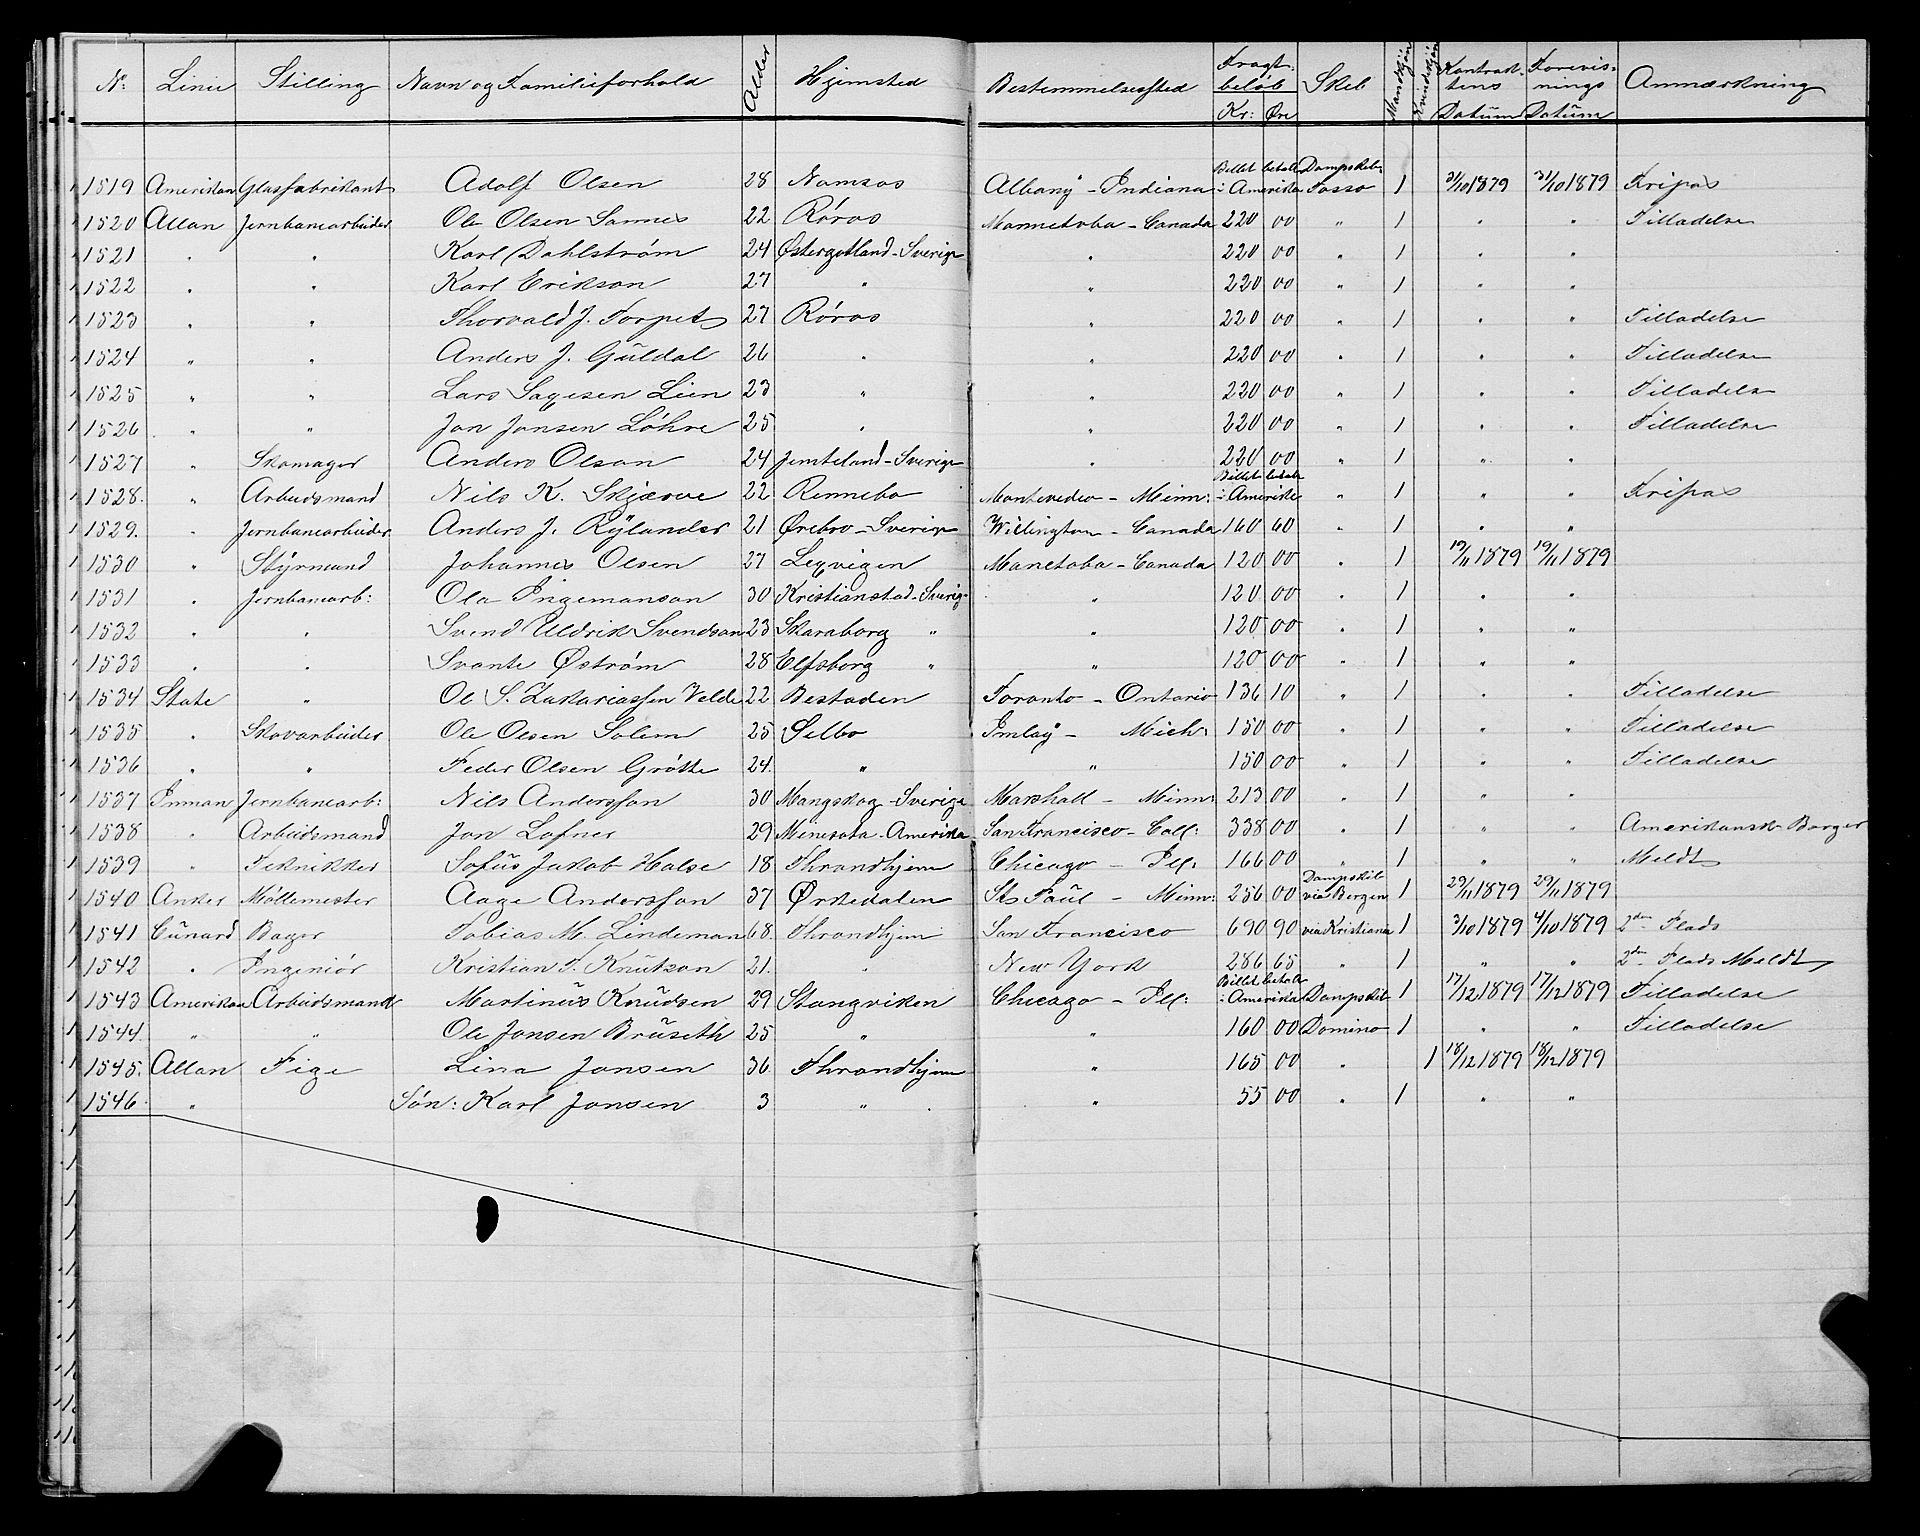 No: Linie Stilling Navn og Familieforhold Alder Hjemsted Bestemmelsessted Fragtbeløb Kr: Øre Skib Mandkjøn Kvindekjøn Kontraktens Datum Forevisnings Datum Anmærkning
1519 Amerikan Glasfabrikant Adolf Olsen 28 Namsos Albany - Indiana Billet betalt i Amerika Dampskib Tasso 1 31/10 1879 31/10 1879 Fripas
1520 Allan Jernbanearbeider Ole Olsen Sannes 22 Røros Mannetoba - Canada 220 00 " 1 " " Tilladelse
1521 " " Karl Dahlström 24 Østergotland - Sverige " 220 00 " 1 " "
1522 " " Karl Erikson 27 " " 220 00 " 1 " "
1523 " " Thorvald J. Torpet 27 Røros " 220 00 " 1 " " Tilladelse
1524 " " Anders J. Güldal 26 " " 220 00 " 1 " " Tilladelse
1525 " " Lars Lien 23 " " 220 00 " 1 " " Tilladelse
1526 " " Jon Jonsen Løhre 25 " " 220 00 " 1 " " Tilladelse
1527 " Skomager Anders Olson 24 Jemteland - Sverige " 220 00 " 1 " "
1528. " Arbeidsmand Nils K. Skjærve 22 Rennebo Montevedio - Minn: Billet betalt i Amerika " 1 " " Fripas
1529. " Jernbanearbeider Anders J. Rylander 21 Ørebro - Sverige Willington - Canada 160 60 " 1 " "
1530 " Styrmand Johannes Olsen 27 Lexvigen Manetoba - Canada 120 00 " 1 19/11 1879 19/11 1879
1531 " Jernbanearb: Ola Ingemanson 30 Kristianstad - Sverig " 120 00 " 1 " "
1532 " " Svend Uldrik Svendson 23 Skaraborg " " 120 00 " 1 " "
1533 " " Svante Østrøm 28 Elfsborg " " 120 00 " 1 " "
1534 State " Ole S. Zakariassen Velde 22 Bestaden Toronto - Ontario 136 10 " 1 " " Tilladelse
1535 " Skovarbeider Ole Olsen Solem 25 Selbo Imlay - Mich: 150 00 " 1 " " Tilladelse
1536 " " Peder Olsen Grøtte 24. " " 150 00 " 1 " " Tilladelse
1537 Inman Jernbanearb: Nils Andersson 30 Mangskog - Sverige Marshall - Minn: 213 00 " 1 " "
1538 " Arbeidsmand Jon Lofner 29 Minesota - Amerika San Francisco - Call: 338 00 " 1 " " Amerikansk Borger
1539 " Teknikker Sofus Jakob Halse 18 Throndhjem Chicago - Ill: 166 00 " 1 " " Meldt
1540 Anker Møllemester Aage Andersson 37 Ørkedalen St Paul - Minn: 256 00 Dampskib via Bergen 1 29/11 1879 29/11 1879
1541 Cunard Bager Tobias M. Lindeman 68. Throndhjem San Francisco 690 90 via Kristiana 1 3/10 1879 4/10 1879 2den Plads
1542 " Ingeniør Kristian F. Knutzon 21. " New York 286 65 " 1 " " 2den Plads Meldt
1543 Amerikan Arbeidsmand Martinus Knudsen 29 Stangviken Chicago - Ill: Billet betalt i Amerika Dampskib 1 17/12 1879 17/12 1879 Tilladelse
1544. " " Ole Jonsen Bruseth 25 " " 160 00 Domino 1 " " Tilladelse
1545. Allan Pige Lina Jonsen 36. Throndhjem " 165 00 " 1 18/12 1879 18/12 1879
1546. " Søn: Karl Jonsen 3 " " 55 00 " 1 " "